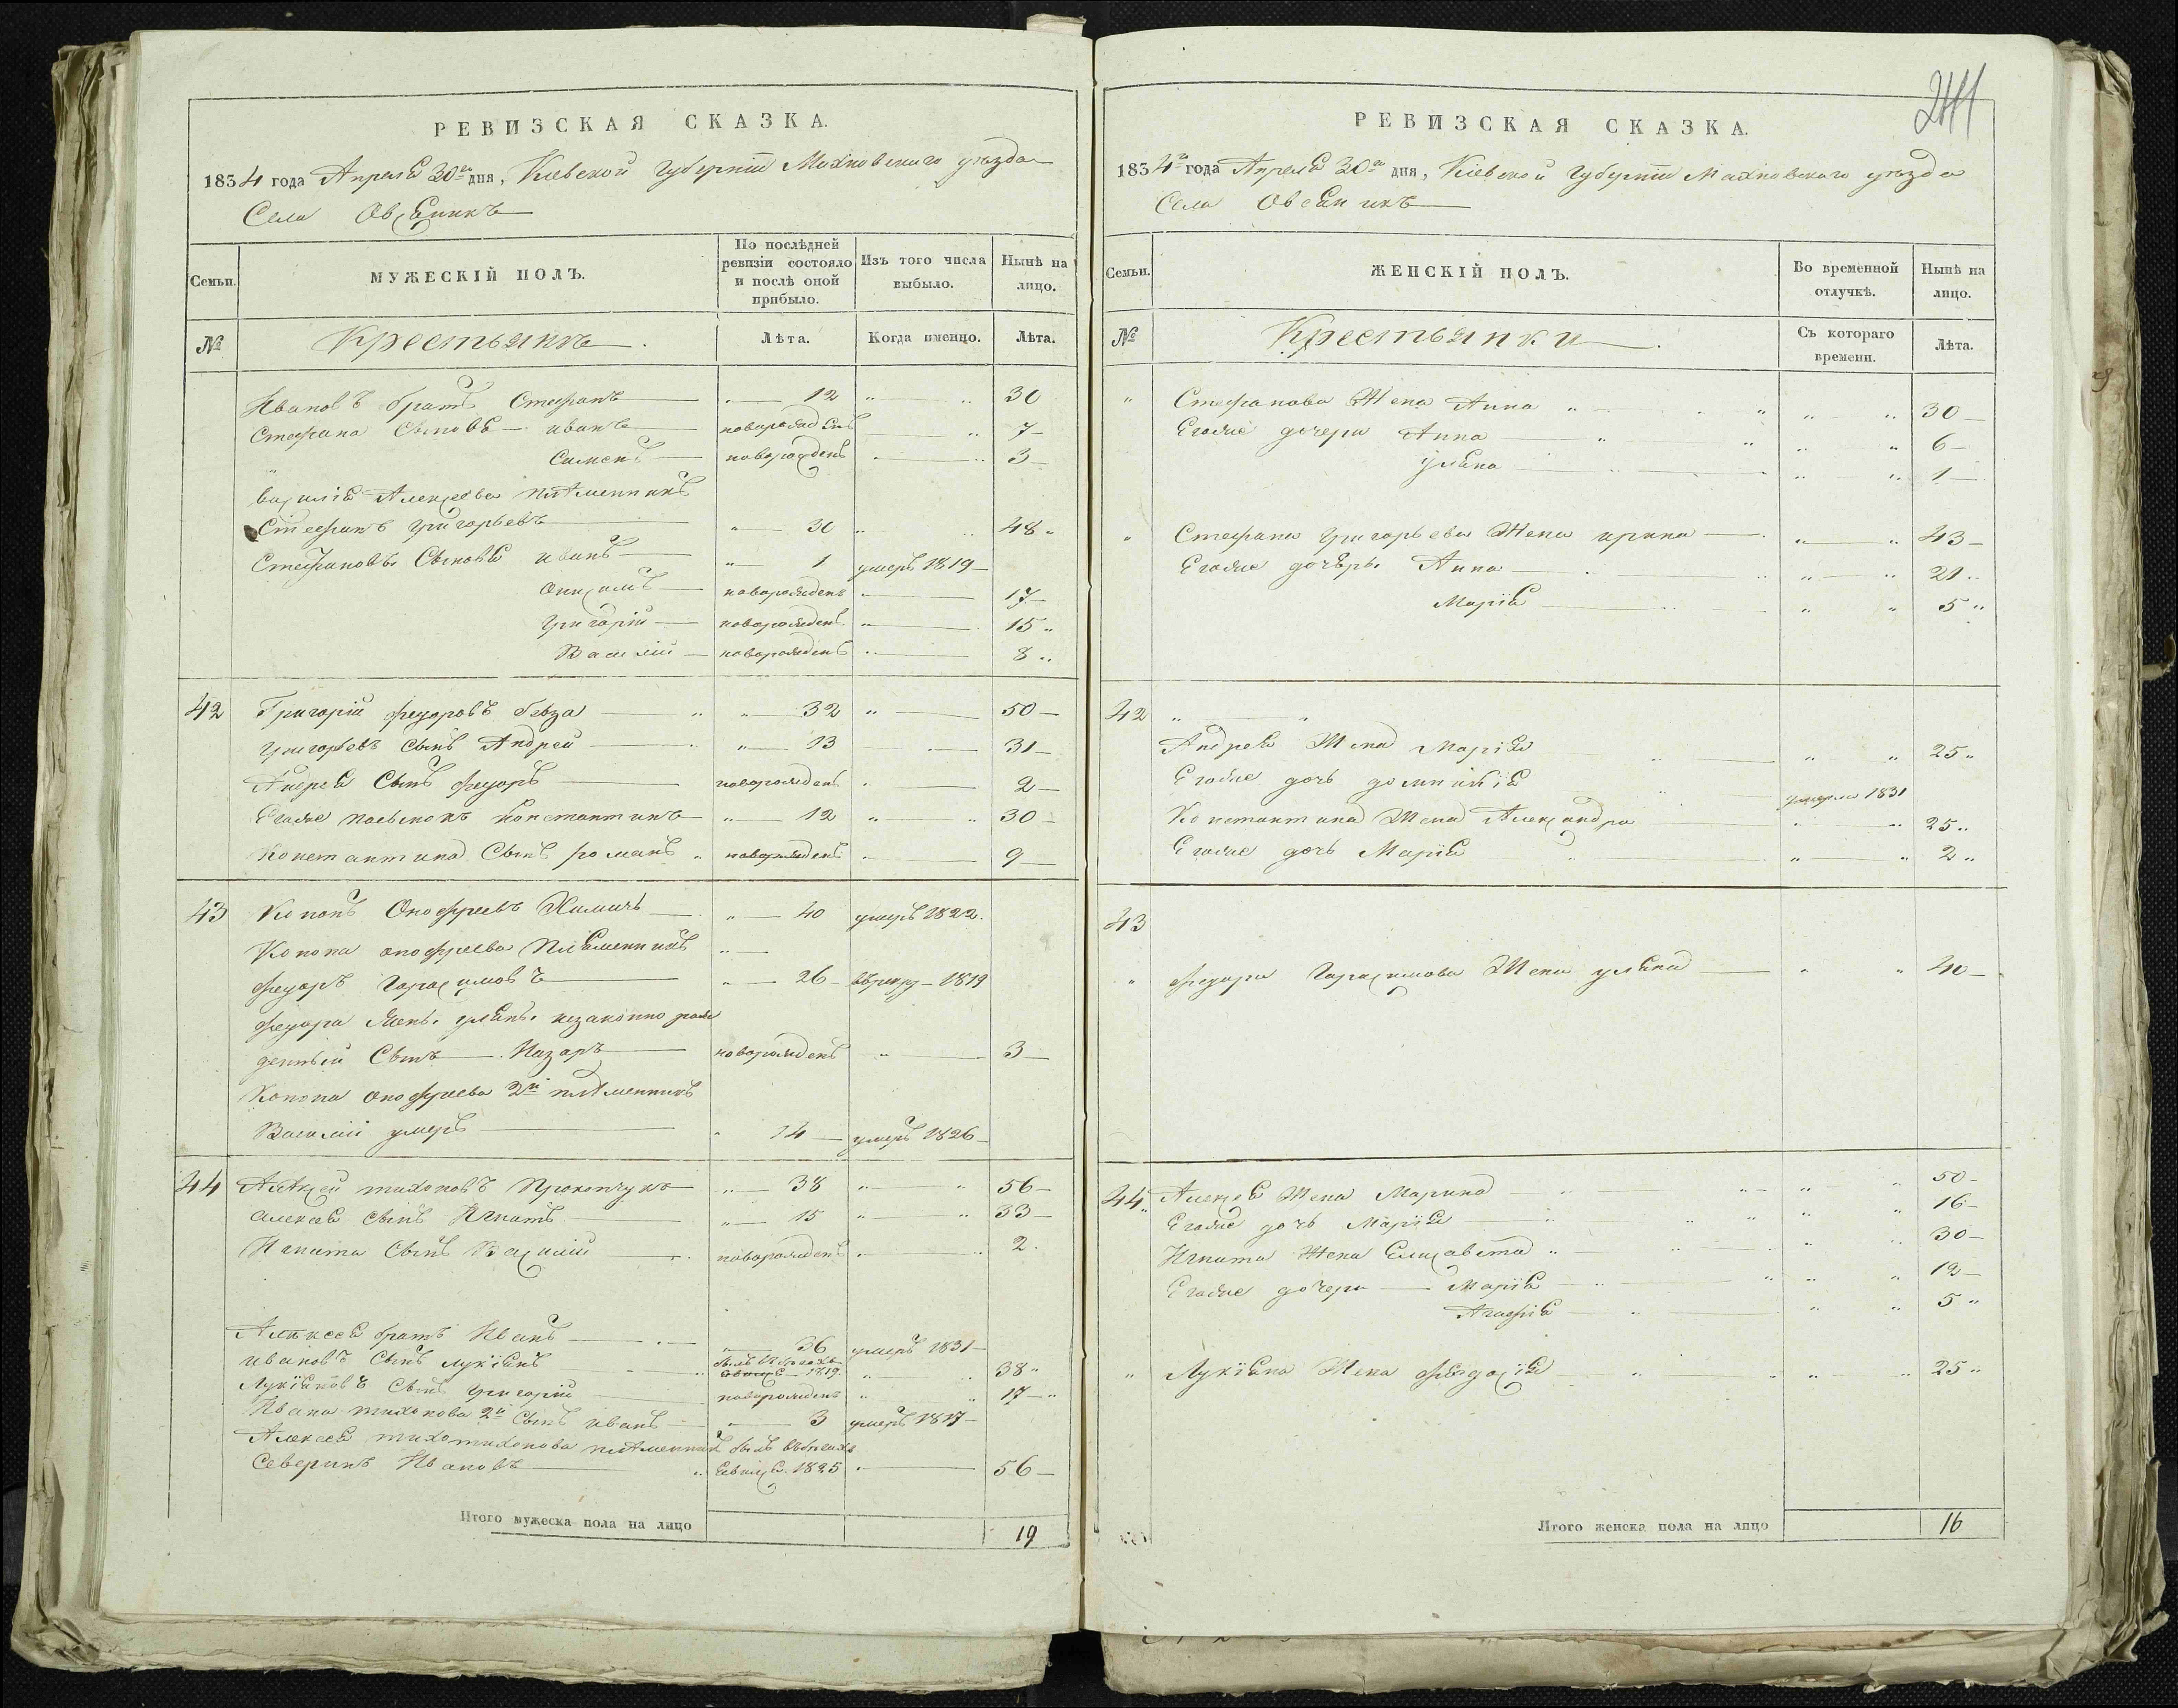 РЕВИЗСКАЯ СКАЗКА.
1834 года Апреля 30го дня, Киевской Губернии Махновского уезда
Села Овсяникъ
Семьи.
МУЖЕСКІЙ ПОЛЪ.
По послѣдней ревизіи состояло и послѣ оной прибыло.
Изъ того числа выбыло.
Нынѣ на лицо.
№
Крестьянъ
Лѣта.
Когда именно.
Лѣта.
Ивановъ братъ Стефанъ 12 30
Стефана Сыновья Иванъ новорожденъ 7
Сименъ новорожденъ 3
Василія Алексеева племенникъ
Стефанъ Григорьевъ 30 48
Стефановы Сыновья Иванъ 1 умеръ 1819
Онисимъ новорожденъ 17
Григорій новорожденъ 15
Василій новорожденъ 8
42 Григорій Федоровъ 32 50
Григорьевъ Сынъ Андрей 13 31
Андрея Сынъ Федоръ новорожденъ 2
Егоже пасынокъ Константинъ 12 30
Константина Сынъ романъ новорожденъ 9
43 Кононъ Онофреевъ Химичъ 40 умеръ 1822.
Конона онофреева Племенникъ
Федоръ Гарасимовъ 26 въ рекру 1819
Федора жены уляны незаконно рож
денный Сынъ Назаръ новорожденъ 3
Конона онофреева 2й племенникъ
Василій умеръ 14 умеръ 1826
44 Алексей тихоновъ Прокопчукъ 38 56
Алексея сынъ Игнатъ 15 33
Игната Сынъ Василій новорожденъ 2
Алексея братъ Иванъ 36 умеръ 1831
Ивановъ Сынъ Лукіянъ былъ в бегахъ явился 1819. 38
Лукіяновъ Сынъ Григорій новорожденъ 17
Ивана тихонова 2й Сынъ иванъ 3 умеръ 1817
Алексея тихотихонова племенникъ былъ въ бегахъ
Северинъ Ивановъ явился 1825 56
Итого мужеска пола на лицо 19
РЕВИЗСКАЯ СКАЗКА.
1834го года Апреля 30го дня, Киевской Губернии Махновского уезда
Села Овсяникъ
Семьи.
ЖЕНСКІЙ ПОЛЪ.
Во временной отлучкѣ.
Нынѣ на лицо.
№
Крестьянки
Съ котораго времени.
Лѣта.
Стефанова Жена Анна 30
Егоже дочери Анна 6
Уляна 1
Стефана Григорьева Жена ирина 43
Егоже дочеры Анна 21
Марія 5
42
Андрея Жена Марія 25
Егоже дочь домникія умерла 1831
Константина Жена Александра 25
Егоже дочь Марія 2
43
Федора Гарасимова Жена уляна 40
44 Алексея Жена Марина 50
Егоже дочь Марія 16
Игната Жена Елисавета 30
Егоже дочери Марія 12
Агафія 5
Лукіяна Жена Феодосія 25
Итого женска пола на лицо 16